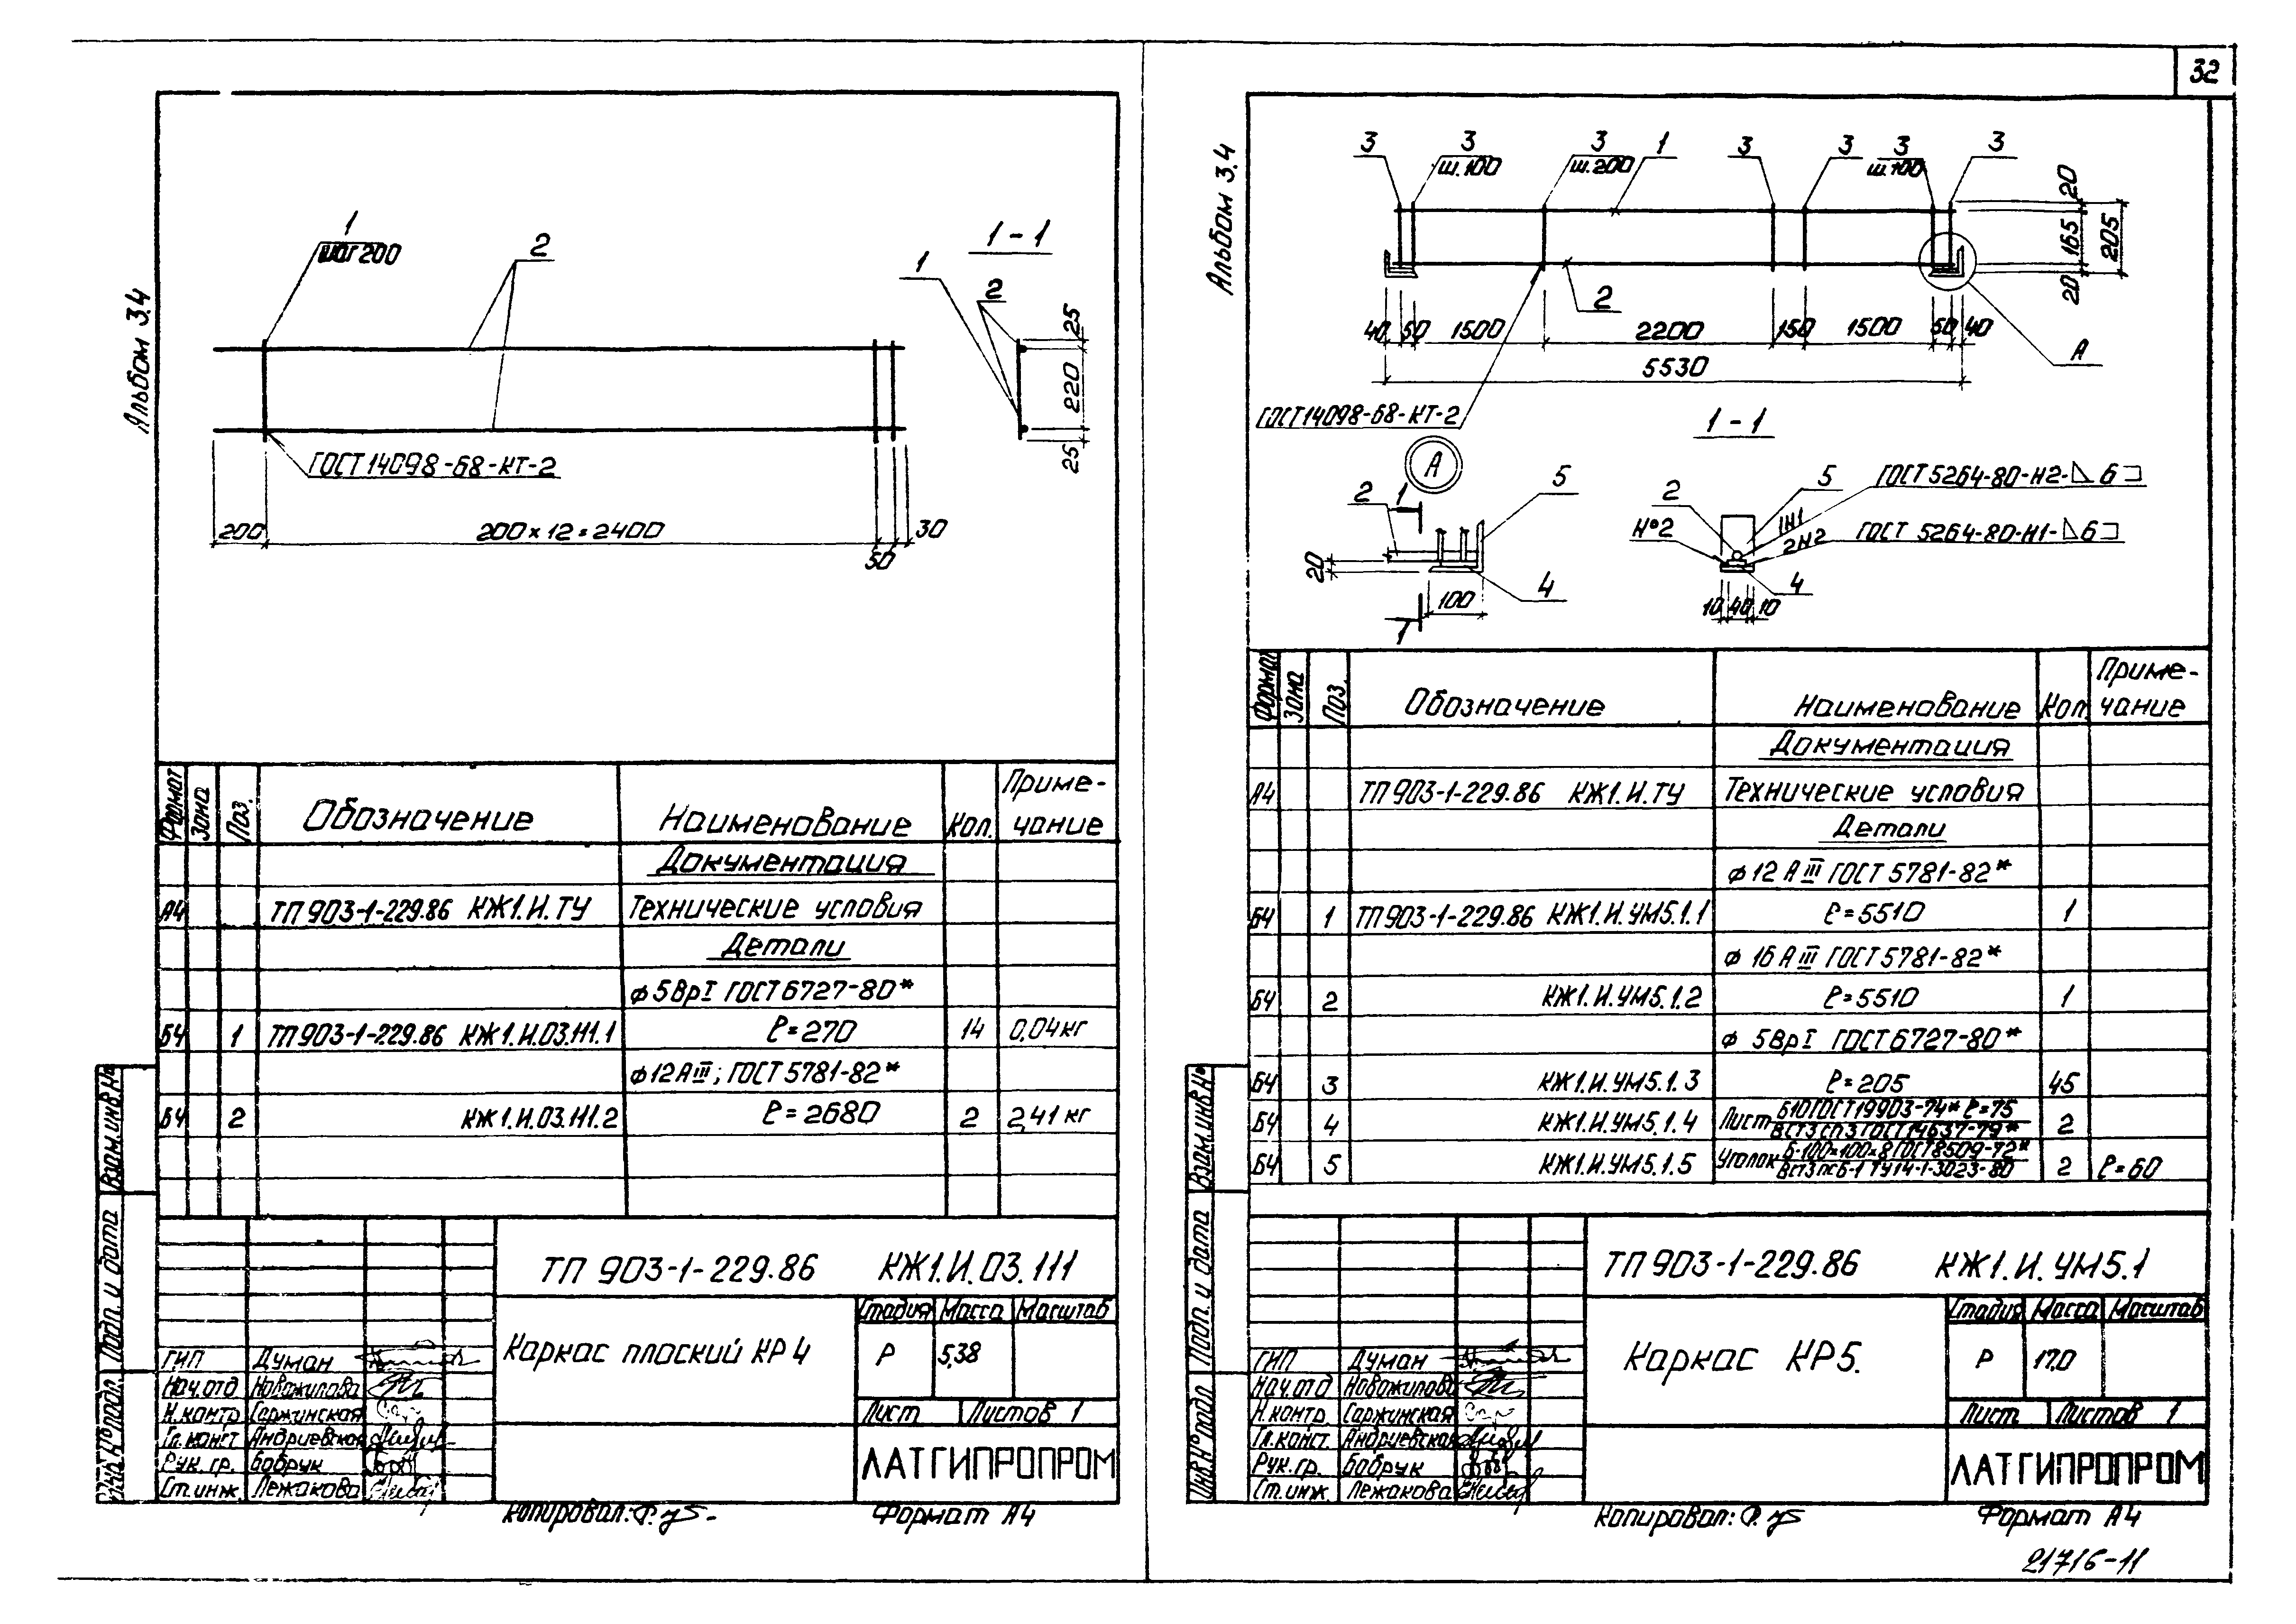 32
Альбом 3.4
1
шаг 200
2
1-1
1
2
25
220
25
ГОСТ 14098-68-КТ-2
200
200×12=2400
50
30
Формат
Зона
Поз.
Обозначение
Наименование
Кол.
Приме-
чание
Документация
А4 ТП 903-1-229.86 КЖ1.И.ТУ Технические условия
Детали
ф5ВрI ГОСТ 6727-80*
БЧ 1 ТП 903-1-229.86 КЖ1.И.03.111.1 ℓ=270 14 0,04кг
ф12АIII; ГОСТ 5781-82*
БЧ 2 КЖ1.И.03.111.2 ℓ=2680 2 2,41кг
Взам.инв.№
Подп. и дата
Инв.№подл.
ТП 903-1-229.86 КЖ1.И.03.111
Каркас плоский КР4
Стадия Масса Масштаб
Р 5,38
Лист Листов 1
ЛАТГИПРОПРОМ
ГИП Думан
Нач.отд Новожилова
Н.контр Саржинская
Гл.конст Андриевская
Рук.гр. Бобрук
Ст.инж. Лежакова
Копировал:
Формат А4
Альбом 3.4
3
3
ш.100
3
ш.200
1
3
3
3
ш.100
3
20
165
205
20
2
40 50 1500 2200 150 1500 50 40
5530
А
ГОСТ 14098-68-КТ-2
1-1
А
1
2
5
20
100
4
1
2
5
ГОСТ 5264-80-Н2-◺6⊐
№2
1Н1
2Н2
ГОСТ 5264-80-Н1-◺6⊐
4
10 40 10
Формат
Зона
Поз.
Обозначение
Наименование
Кол.
Приме-
чание
Документация
А4 ТП 903-1-229.86 КЖ1.И.ТУ Технические условия
Детали
ф12 АIII ГОСТ 5781-82*
БЧ 1 ТП 903-1-229.86 КЖ1.И.УМ5.1.1 ℓ=5510 1
ф 16 АIII ГОСТ 5781-82*
БЧ 2 КЖ1.И.УМ5.1.2 ℓ=5510 1
ф 5ВрI ГОСТ 6727-80*
БЧ 3 КЖ1.И.УМ5.1.3 ℓ=205 45
БЧ 4 КЖ1.И.УМ5.1.4 Лист Б10 ГОСТ 19903-74* ℓ=75 2
ВСт3сп3 ГОСТ 14637-79*
БЧ 5 КЖ1.И.УМ5.1.5 Уголок Б-100×100×8 ГОСТ 8509-72* 2 ℓ=60
ВСт3пс6-1 ТУ14-1-3023-80
Взам.инв.№
Подп. и дата
Инв.№подл.
ТП 903-1-229.86 КЖ1.И.УМ5.1
Каркас КР5.
Стадия Масса Масштаб
Р 17,0
Лист Листов 1
ЛАТГИПРОПРОМ
ГИП Думан
Нач.отд Новожилова
Н.контр. Саржинская
Гл.конст. Андриевская
Рук.гр. Бобрук
Ст.инж. Лежакова
Копировал:
Формат А4
21716-11